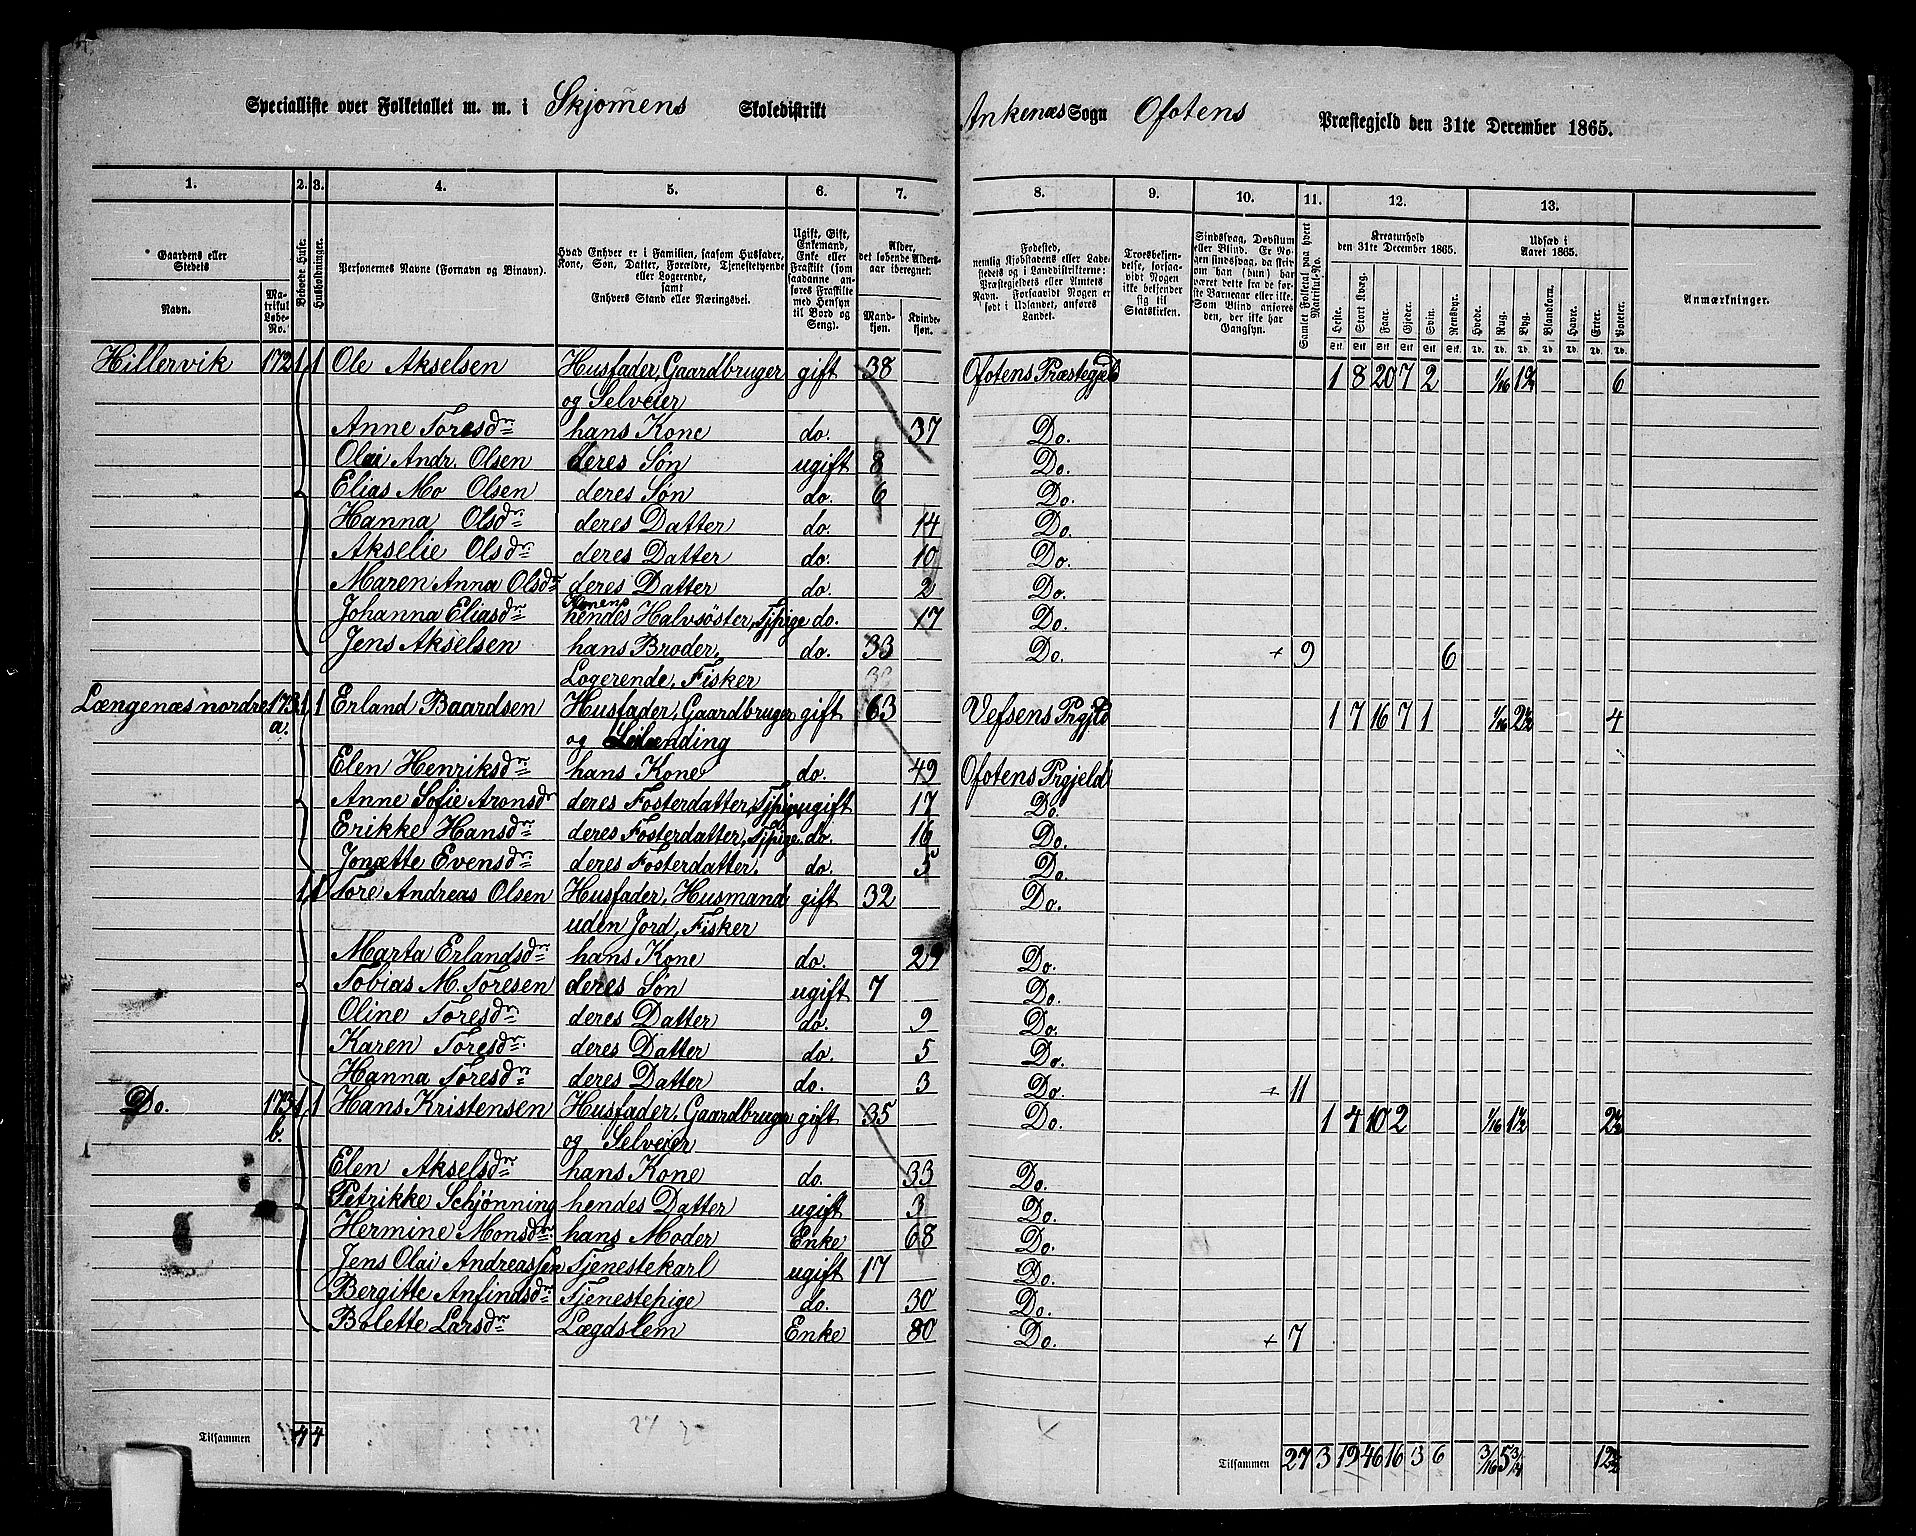 Specialliste over Folketallet m. m. i Skjomens Skoledistrikt Ankenæs Sogn Ofotens Præstegjeld den 31te December 1865.
1. 2. 3. 4. 5. 6. 7. 8. 9. 10. 11. 12. 13.
Gaardens eller Stedets
Navn. Matrikul Løbe-No.
Beboede Huse.
Husholdninger.
Personernes Navne (Fornavn og Binavn).
Hvad Enhver er i Familien, saasom Husfader, Kone, Søn, Datter, Forældre, Tjenestetyende eller Logerende, samt Enhvers Stand eller Næringsvei.
Ugift, Gift, Enkemand, Enke eller Fraskilt (som saadanne anføres Fraskilte med Hensyn til Bord og Seng).
Alder, det løbende Aldersaar iberegnet.
Mandkjøn. Kvindekjøn.
Fødested, nemlig Kjøbstadens eller Ladestedets og i Landdistrikterne: Præstegjeldets eller Amtets Navn. Forsaavidt Nogen er født i Udlandet, anføres Landet.
Troesbekjendelse, forsaavidt Nogen ikke bekjender sig til Statskirken.
Sindssvag, Døvstum eller Blind. Er Nogen sindssvag, da skrives om han (hun) har været det fra de første Barneaar eller ikke. Er Nogen Blind, anføres den, der ikke har Gangsyn.
Samlet Folketal paa hvert Matrikul-No.
Kreaturhold den 31te December 1865.
Heste. Stort Kvæg. Faar. Gjeder. Svin. Rensdyr.
Udsæd i Aaret 1865.
Hvede. Rug. Byg. Blandkorn. Havre. Erter. Poteter.
Anmærkninger.
Stk. Stk. Stk. Stk. Stk. Stk. Td. Td. Td. Td. Td. Td. Td.
Hillervik 172 1 1 Ole Akselsen Husfader, Gaardbruger gift 38 Ofotens Præstegjeld 1 8 20 7 2 1/16 6
og Selveier
Anne Toresdr hans Kone do. 37 Do.
Olai Andr. Olsen deres Søn ugift 8 Do.
Elias Mo Olsen deres Søn do. 6 Do.
Hanna Olsdr deres Datter do. 14 Do.
Akselie Olsdr deres Datter do. 10 Do.
Maren Anna Olsdr deres Datter do. 2 Do.
Konens
Johanna Eliasdr hendes Halvsøster, Tjpige do. 17 Do.
Jens Akselsen hans Broder, do. 33 Do. + 9 6
Logerende, Fisker
Længenæs nordre 173 1 1 Erland Baardsen Husfader, Gaardbruger gift 63 Vefsens Prgjld 1 7 16 7 1 1/16 2½ 4
a. og Leilænding
Elen Henriksdr hans Kone do. 49 Ofotens Prgjeld
Anne Sofie Aronsdr deres Fosterdatter, Tjpige ugift 17 Do.
Erikke Hansdr deres Fosterdatter, Tjpige do. 16 Do.
Jonætte Evensdr deres Fosterdatter. do. 5 Do.
1 1 Tore Andreas Olsen Husfader, Husmand gift 32 Do.
uden Jord, Fisker
Marta Erlandsdr hans Kone do. 29 Do.
Tobias M. Toresen deres Søn ugift 7 Do.
Oline Toresdr deres Datter do. 9 Do.
Karen Toresdr. deres Datter do. 5 Do.
Hanna Toresdr deres Datter do. 3 Do. + 11
Do. 173 1 1 Hans Kristensen Husfader, Gaardbruger gift 35 Do. 1 4 10 2 1/16 1½ 2½
b. og Selveier
Elen Akselsdr hans Kone do. 33 Do.
Petrikke Schjønning hendes Datter ugift 3 Do.
Hermine Monsdr. hans Moder Enke 68 Do.
Jens Olai Andreassen Tjenestekarl ugift 17 Do.
Bergitte Anfindsdr Tjenestepige do. 30 Do.
Bolette Larsdr Lægdslem Enke 80 Do. + 7
Tilsammen 4 4 Tilsammen 27 3 19 46 16 3 6 3/16 5¾ 12½